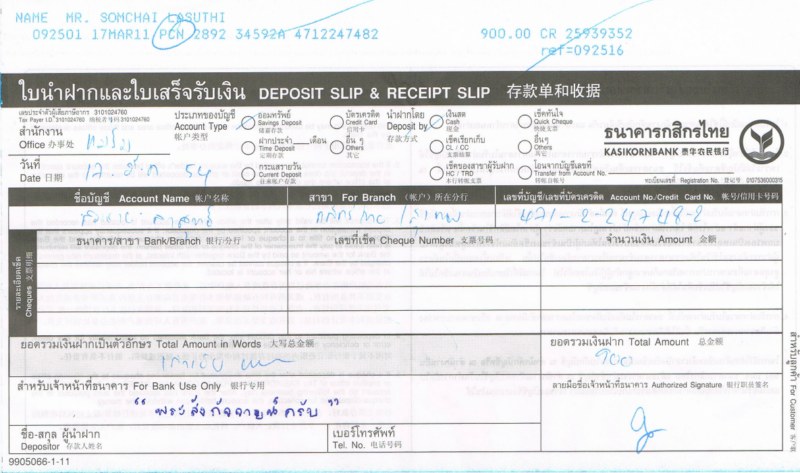 NAME MR. SOMCHAI LASUTHI
092501 17MAR11 PCN 2892 34592A 4712247482 900.00 CR 25939352
ref=092516
ใบนำฝากและใบเสร็จรับเงิน DEPOSIT SLIP & RECEIPT SLIP 存款单和收据
เลขประจำตัวผู้เสียภาษีอากร 3101024760
Tax Payer I.D. 3101024760
สำนักงาน
Office 办事处
วันที่
Date 日期
ประเภทของบัญชี
Account Type
帐户类型
ออมทรัพย์
Savings Deposit
储蓄存款
ฝากประจำ เดือน
Time Deposit
定期存款
กระแสรายวัน
Current Deposit
บัตรเครดิต
Credit Card
信用卡
อื่น ๆ
Others
其它
นำฝากโดย
Deposit by
存款方式
เงินสด
Cash
现金
เช็คเรียกเก็บ
CL / CC
เช็คของสาขาผู้รับฝาก
HC / TRD
เช็คทันใจ
Quick Cheque
อื่นๆ
Others
其它
โอนจากบัญชีเลขที่
Transfer from Account No.
ธนาคารกสิกรไทย
KASIKORNBANK 泰华农民银行
ทะเบียนเลขที่ Registration No. 登记号 0107536000315
ชื่อบัญชี Account Name 帐户名称
สาขา For Branch (帐户) 所在分行
เลขที่บัญชี/เลขที่บัตรเครดิต Account No./Credit Card No. 帐号/信用卡号码
471-2-24748-2
ธนาคาร/สาขา Bank/Branch 银行/分行
เลขที่เช็ค Cheque Number 支票号码
จำนวนเงิน Amount 金额
รายละเอียดเช็ค
Cheques 支票明细
ยอดรวมเงินฝากเป็นตัวอักษร Total Amount in Words 大写总金额
ยอดรวมเงินฝาก Total Amount 总金额
900
สำหรับเจ้าหน้าที่ธนาคาร For Bank Use Only 银行专用
ลายมือชื่อเจ้าหน้าที่ธนาคาร Authorized Signature 银行职员签名
" พระสังกัจจายน์ครับ "
ชื่อ-สกุล ผู้นำฝาก
Depositor 存款人姓名
เบอร์โทรศัพท์
Tel. No. 电话号码
สำหรับลูกค้า For Customer 客户联
9905066-1-11